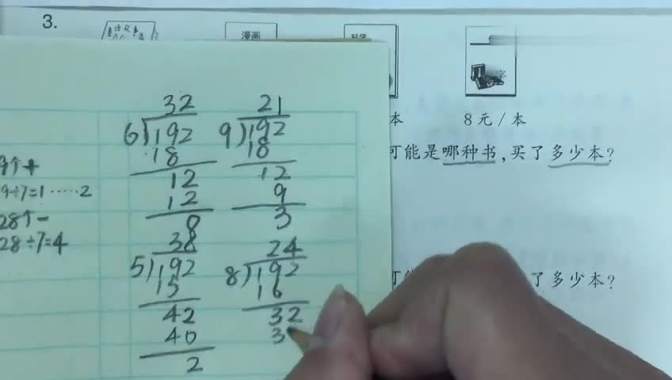 3.
漫画
科学
本
8元/本
可能是哪种书,买了多少本?
了多少本?
9个十
9÷7=1……2
28个一
28÷7=4
32
6)192
18
12
12
8
21
9)192
18
12
9
3
38
5)192
15
42
40
2
24
8)192
16
32
3